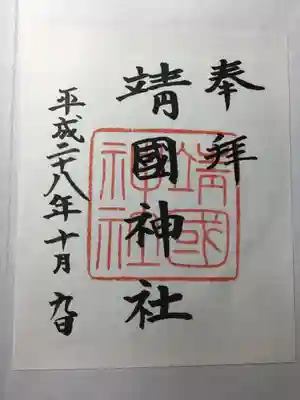 奉拝
靖國神社
平成二十八年十月九日
靖國
神社